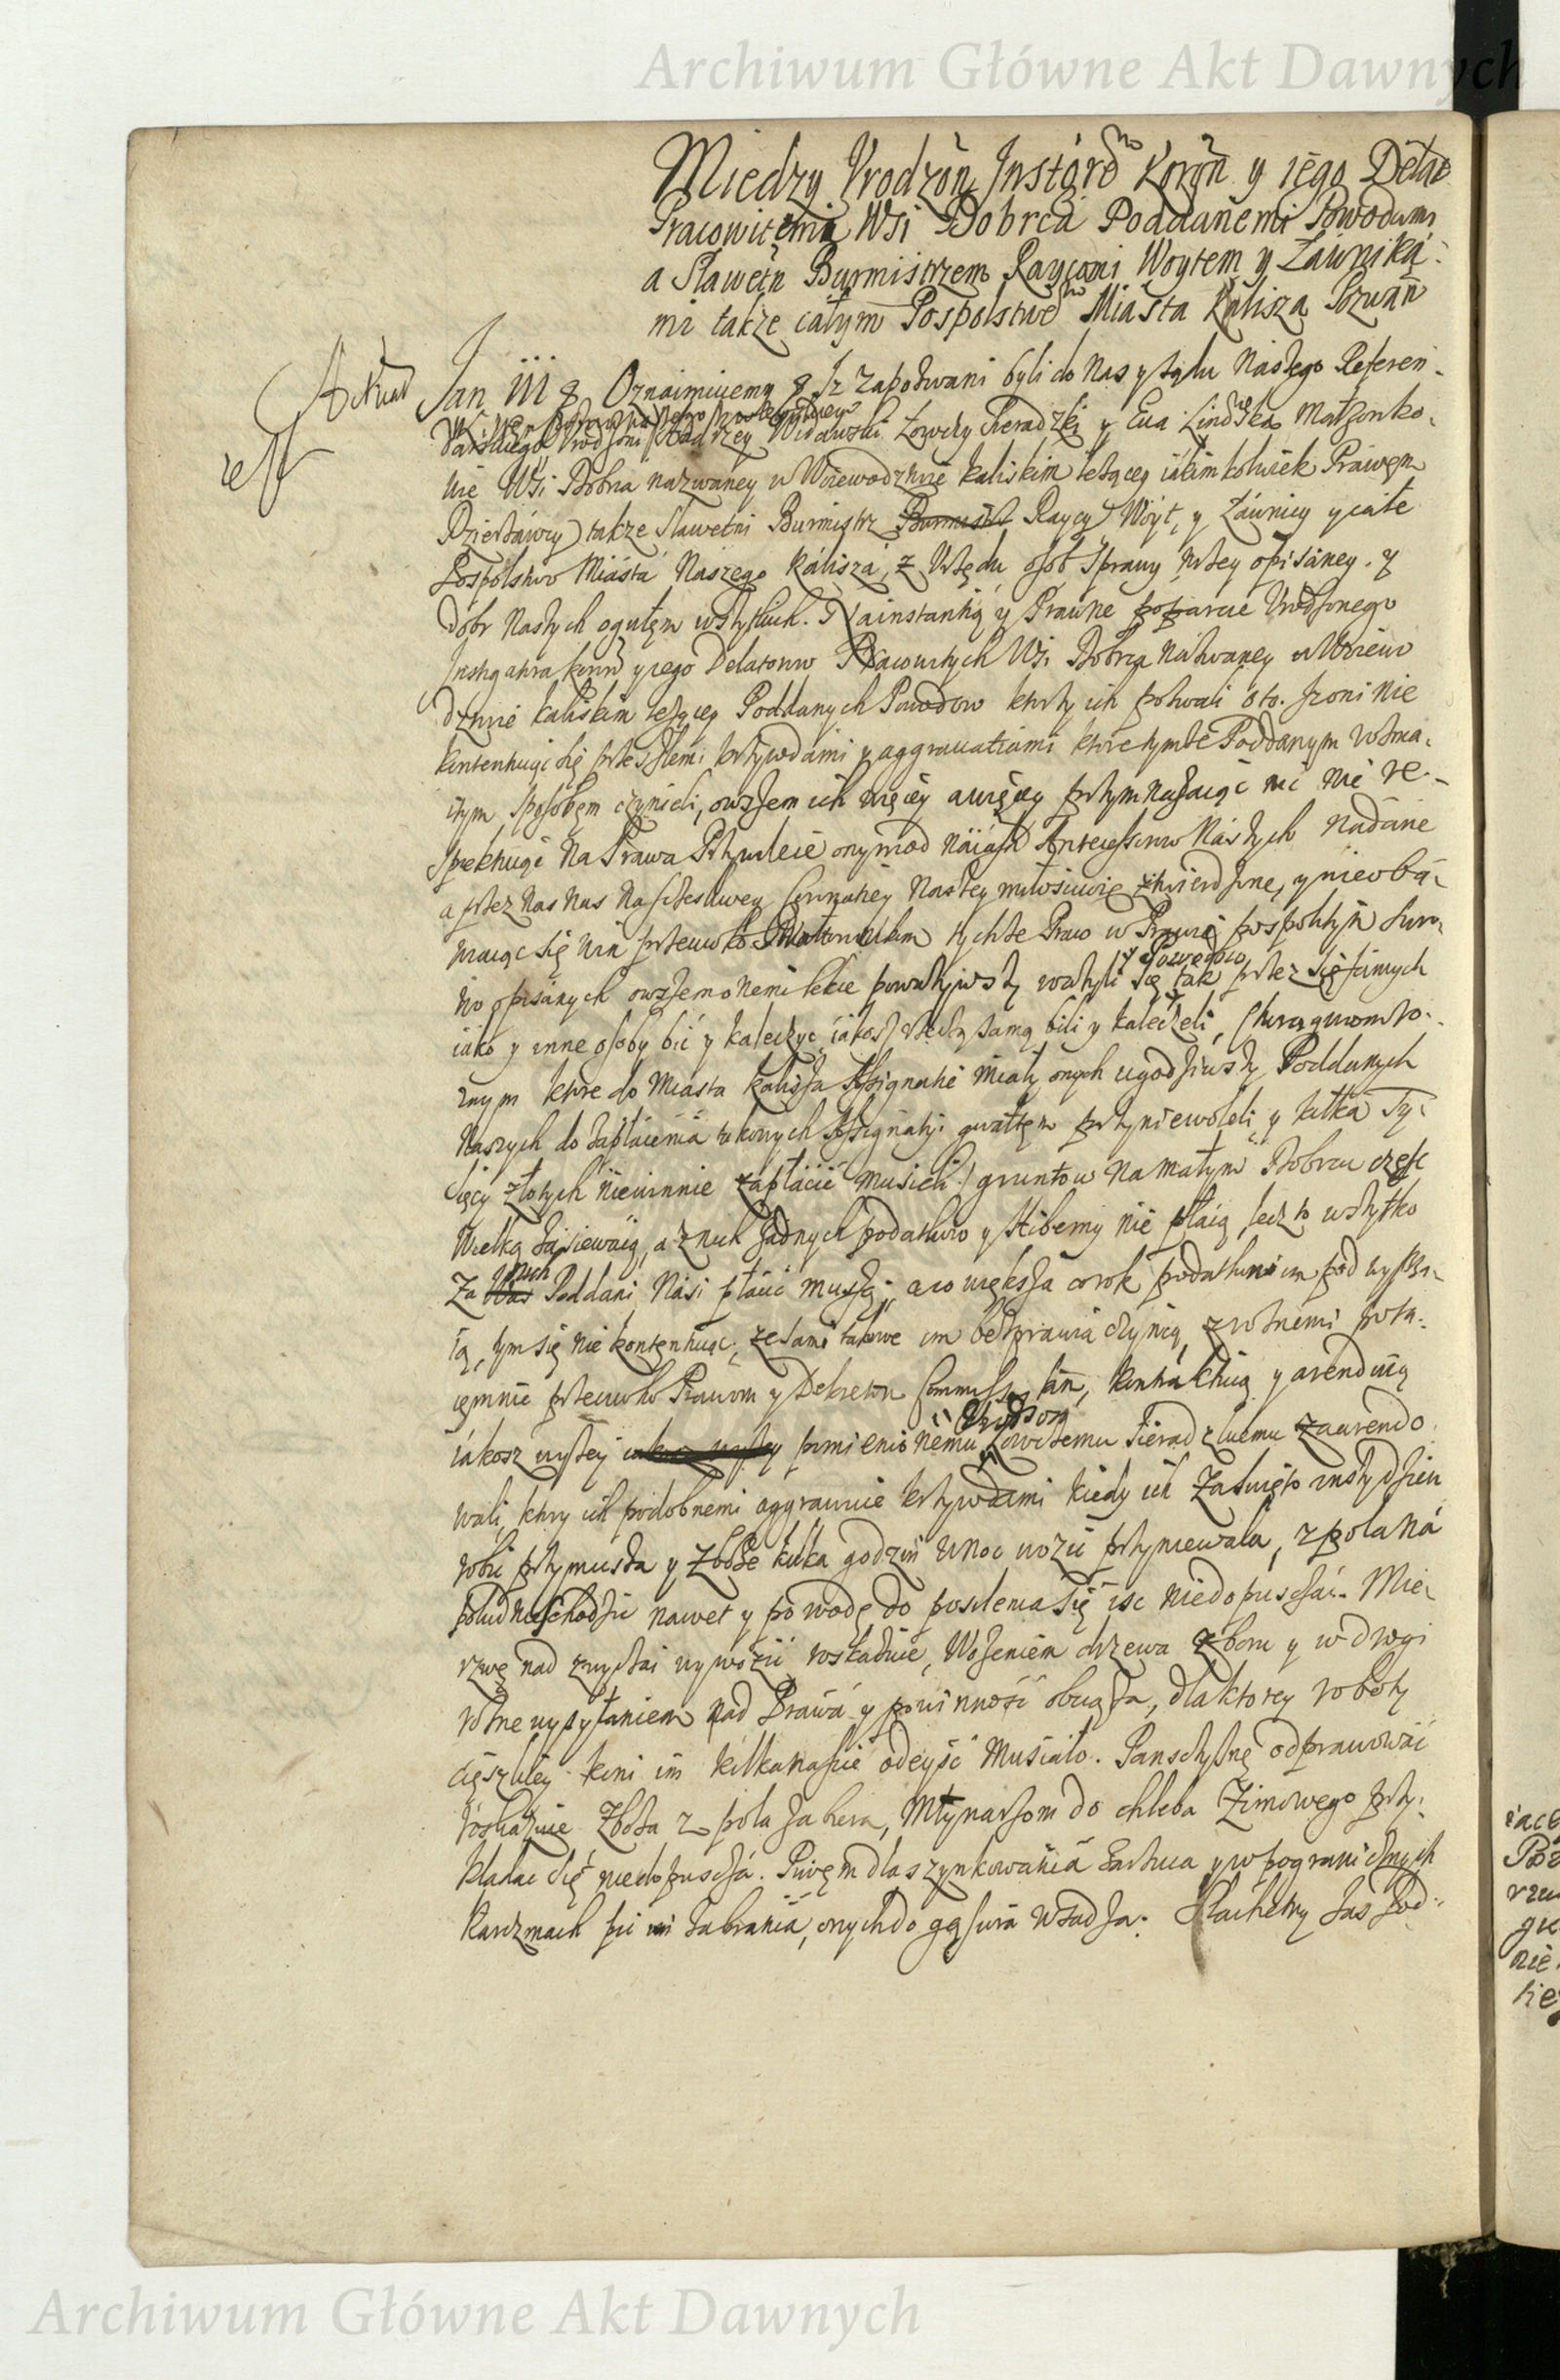 Archiwum Główne Akt Dawnych
Miedzy Vrodzon Instgre Koron y iego Delat
Pracowitemi Wsi Dobrca Poddanemi Powodami
a Sławetn Burmistrzem Raycami Woytem y Ławniká-
mi także całym Pospolstwe Miasta Kalisza Pozwan
Jan III & Oznaimuiemy & Iz zapozwani byli do Nas y sądu Naszego Referen-
darskiego Vrodzoni Widawski Łowczy Sieradzki y Ewa Małzonko-
wie Wsi Dobrca nazwaney w Woiewodztwie kaliskim leżącey iakimkolwiek Prawem
Dzierżawcy także Sławetni Burmistrz Raycy Wóyt, y Ławnicy y całe
Pospolstwo Miásta Naszego Kálisza, z Vrzędu osob Sprawy niżey opisaney. y
dobr Naszych ogułem wszytkich. Na instantią y Prawne poparcie Vrodzonego
Instigatora koron y iego Delatorow Pracowitych Wsi Dobrca názwaney w Woiewo
dztwie kaliskim leżącey Poddanych Powodow ktorzy ich pozwali o to. Iz oni nie
kontentuiąc się przeszłemi krzywdami y aggrauatiami ktore tymże Poddanym rozma-
itym sposobem czynieli, owszem ich więcey a więcey przymnażaiąc nic nie re-
spektuiąc na Prawa Przywileie onym od náiáśn Antecessorow Nászych nadane
a przez Nas Nas na szczesliwey Coronatiey Naszey miłościwie ztwierdzone, y nieoba-
wiaiąc się win przeciwko tychże Praw w Prawie pospolitym suro-
wo opisanych owszem onemi lekce poważywszy ważyli się tak przez się samych
iako y inne osoby bić y kaleczyc, iakosz rzeczą samą bili y kaleczeli, Chorągwiom ro-
znym ktore do Miasta Kalisza Assignatie miały onych ugodziwszy Poddanych
Naszych do zapłácenia takowych Assignatyi gwałtem przyniewoleli y kilká Ty-
sięcy złotych niewinnie zapłácić musieli. gruntow na małym Dobrcu częsc
wielką zásiewáią, a z nich żadnych podatkow y Hiberny nie płácą, lecz to wszytko
Za nich Poddani Nási płácić muszą; a co większa co rok podatkow im podwyższa-
ią, tym się nie kontentuiąc; ze sami takowe im bezprawia czynią, z roznemi pota-
iemnie przeciwko Prawom y Dekretom Commiss kontraktuią y arenduią
iakosz wyżey pomienionemu Łowczemu Sieradzkiemu zaarendo-
wali, ktory ich podobnemi aggrauuie krzywdami kiedy ich za święto w dzien
robić przymusza y Zboże kilka godzin w noc wozić przyniewala, z pola ná
południe schodzić nawet y po wodę do posilenia się isc niedopuscza. Mie-
rzwę nad zwyczai wywozić roskazuie, Wożeniem drzewa z boru y w drogi
rozne wysyłaniem nad Prawá y powinność obciąża, dla ktorey roboty
cięszkiey koni im kilkanascie odeyść musiało. Pańszczyznę odprawować
roskazuie Zboża z pola zabiera, Młynarzom do chleba Zimowego przy-
kładac się niedopuscza. Piwem dla szynkowania y w pogranicznych
Karczmach pić im zabrania, onych do gąsiora wsadza. Slachetny zas Pod-
Archiwum Główne Akt Dawnych